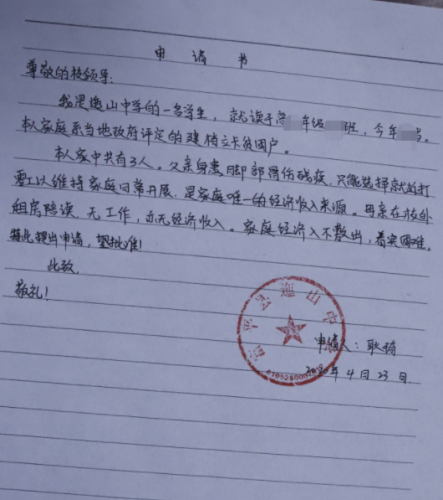 申请书
尊敬的校领导:
我是迤山中学的一名学生，就读于高年级班，今年。
本人家庭系当地政府评定的建档立卡贫困户。
本人家中共有3人。父亲身患脚部损伤残疾，只能选择就近打
零工以维持家庭日常开展，是家庭唯一的经济收入来源。母亲在校外
租房陪读，无工作，亦无经济收入。家庭经济入不敷出，着实困难。
特此提出申请，望批准!
此致
敬礼!
富平县迤山中学
申请人:耿
年4月23日